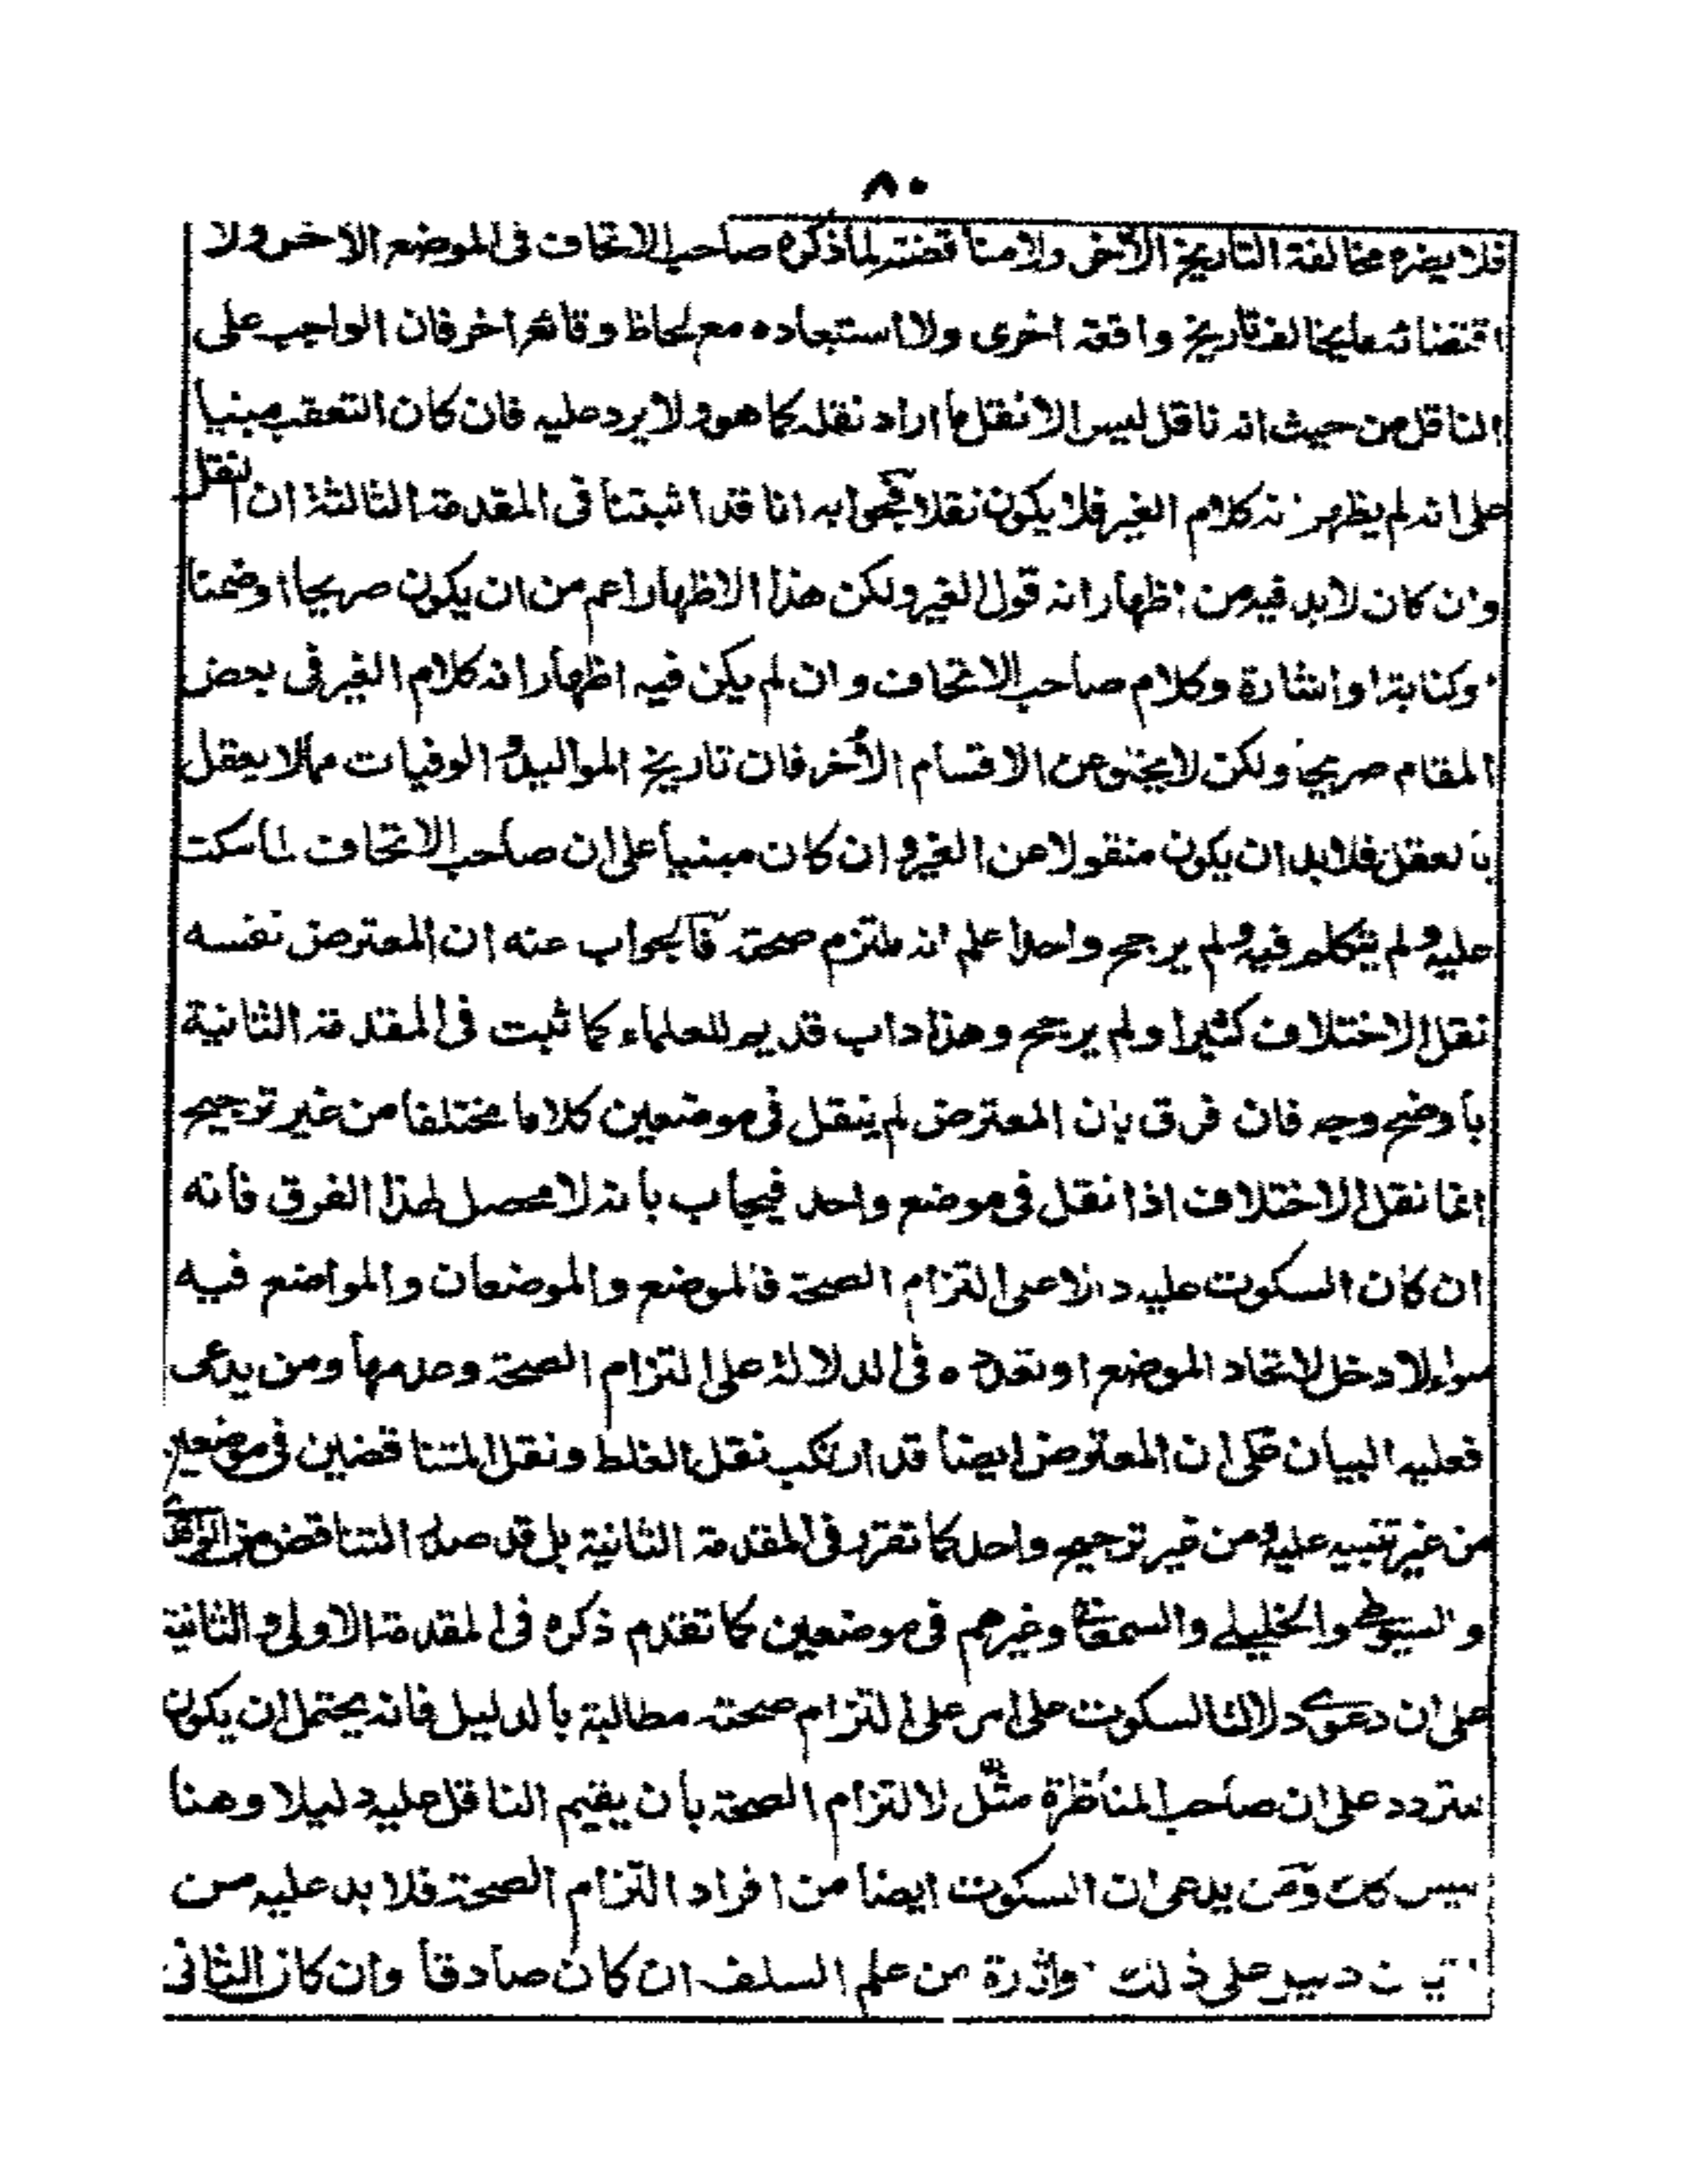 ٨٠
فلا يضره مخالفة التاريخ الأخرى ولا مناقضته لما ذكره صاحب الاتحاف فى الموضع الاخر ولا
اقتضائه ما يخالف تاريخ واقعة اخرى ولا استبعاده مع لحاظ وقائع اخر فان الواجب على
الناقل من حيث انه ناقل ليس الا نقل ما اراد نقله كما هو ولا يرد عليه فان كان التعقب مبنيا
على انه لم يظهر انه كلام الغير فلا يكون نقلا فجوابه انا قد اثبتنا فى المقدمة الثالثة ان النقل
وان كان لا بد فيه من اظهار انه قول الغير ولكن هذا الاظهار اعم من ان يكون صريحا او ضمنا
او كناية او اشارة وكلام صاحب الاتحاف وان لم يكن فيه اظهار انه كلام الغير فى بعض
المقام صريحا ولكن لا يخلو عن الاقسام الأخر فان تاريخ المواليد والوفيات مما لا يعقل
بالعقل فلا بد ان يكون منقولا عن الغير وان كان مبنيا على ان صاحب الاتحاف لما سكت
عليه ولم يتكلم فيه ولم يرجح واحدا علم انه ملتزم صحته فالجواب عنه ان المعترض نفسه
نقل الاختلاف كثيرا ولم يرجح وهذا داب قديم للعلماء كما ثبت فى المقدمة الثانية
بأوضح وجه فان فرق بان المعترض لم ينقل فى موضعين كلاما مختلفا من غير ترجيح
انما نقل الاختلاف اذا نقل فى موضع واحد فيجاب بانه لا محصل لهذا الفرق فأنه
ان كان السكوت عليه دالا على التزام الصحة فالموضع والموضعان والمواضع فيه
سواء لا دخل لاتحاد الموضع او تعدده فى الدلالة على التزام الصحة وعدمها ومن يدعى
فعليه البيان على ان المعترض ايضا قد ارتكب نقل الغلط ونقل المتناقضين فى موضعين
من غير تنبيه عليه ومن غير ترجيح واحد كما تقرر فى المقدمة الثانية بل قد صدر التناقض من
والسيوطى والخليلى والسمعانى وغيرهم فى موضعين كما تقدم ذكره فى المقدمة الاولى والثانية
على ان دعوى دلالة السكوت على امر على التزام صحته مطالبة بالدليل فانه يحتمل ان يكون
متردد على ان صاحب المناظرة مثّل لالتزام الصحة بأن يقيم الناقل عليه دليلا وهنا
ليس كك ومن يدعى ان السكوت ايضا من افراد التزام الصحة فلا بد عليه من
على ذلك واثارة من علم السلف ان كان صادقا وان كان الثانى